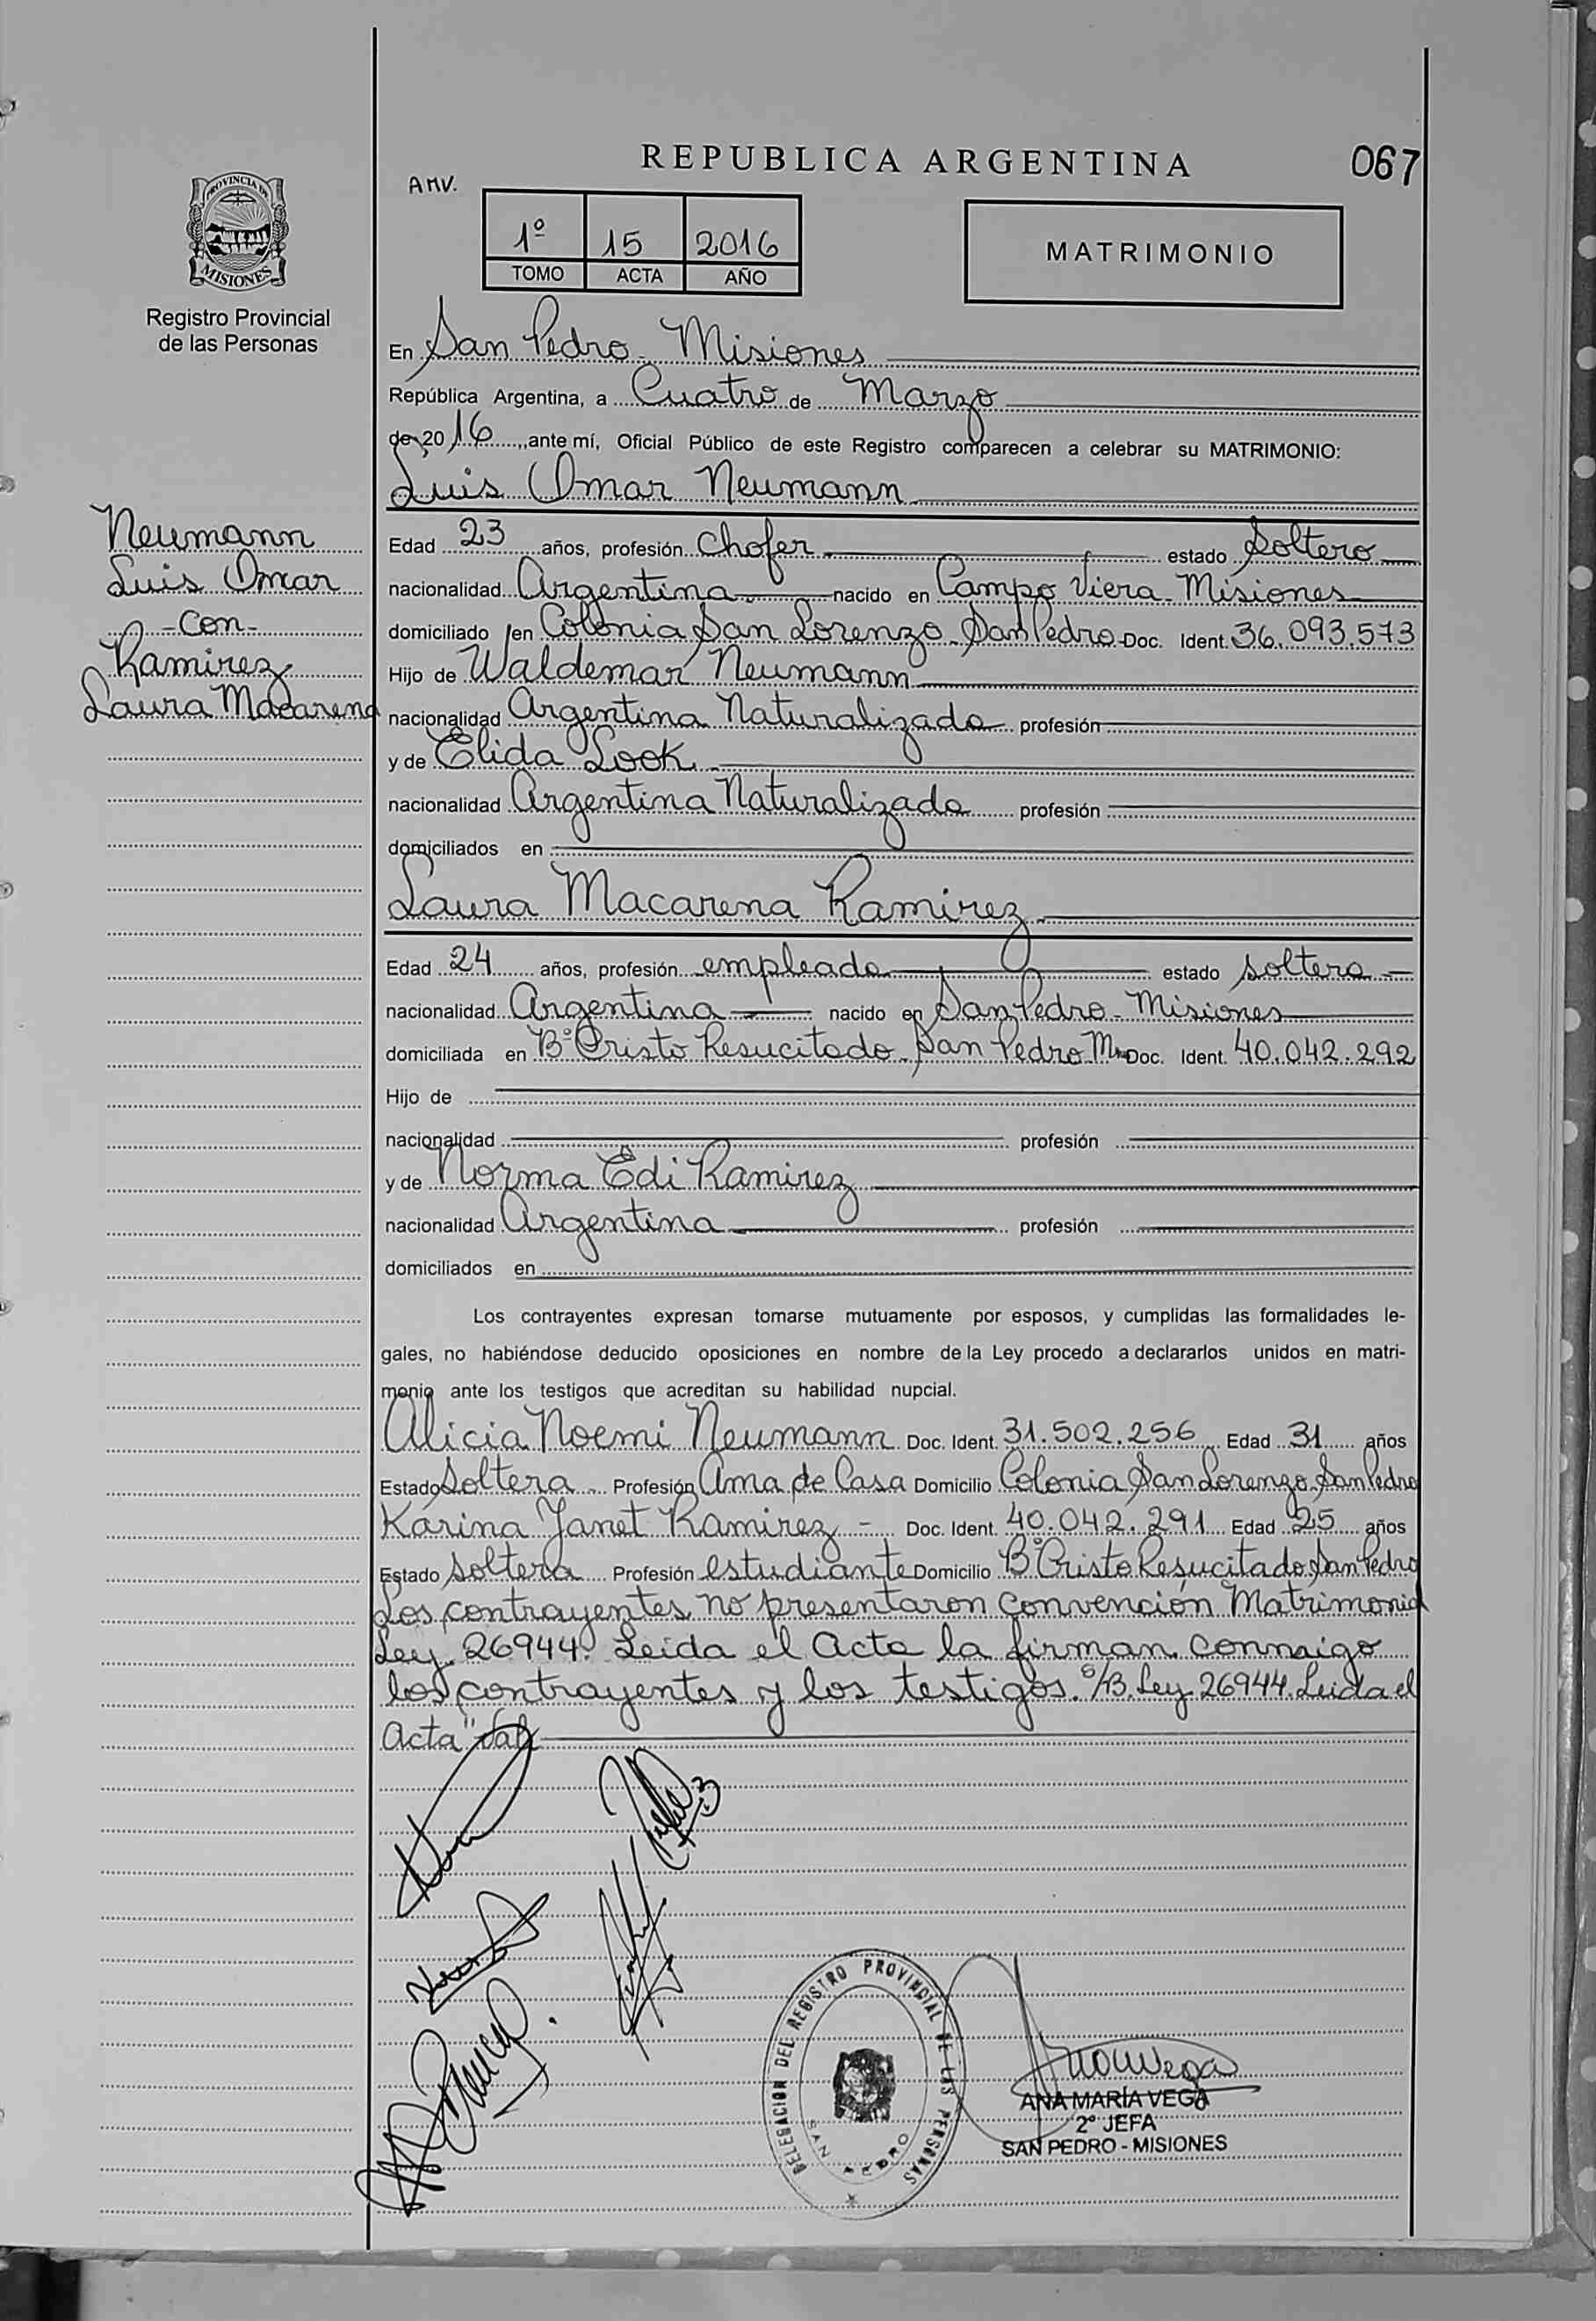 REPUBLICA ARGENTINA
067
AMV.
1º 15 2016
TOMO ACTA AÑO
MATRIMONIO
PROVINCIA DE
MISIONES
Registro Provincial
de las Personas
En San Pedro - Misiones
República Argentina, a Cuatro de Marzo
de 2016, ante mí, Oficial Público de este Registro comparecen a celebrar su MATRIMONIO:
Luis Omar Neumann
Neumann
Luis Omar
- Con -
Ramirez
Laura Macarena
Edad 23 años, profesión Chofer estado Soltero
nacionalidad Argentina nacido en Campo Viera - Misiones
domiciliado en Colonia San Lorenzo - San Pedro Doc. Ident. 36.093.573
Hijo de Waldemar Neumann
nacionalidad Argentina Naturalizado profesión
y de Elida Look
nacionalidad Argentina Naturalizada profesión
domiciliados en
Laura Macarena Ramirez
Edad 24 años, profesión empleada estado soltera
nacionalidad Argentina nacido en San Pedro - Misiones
domiciliada en Bº Cristo Resucitado - San Pedro M. Doc. Ident. 40.042.292
Hijo de
nacionalidad profesión
y de Norma Edi Ramirez
nacionalidad Argentina profesión
domiciliados en
Los contrayentes expresan tomarse mutuamente por esposos, y cumplidas las formalidades le-
gales, no habiéndose deducido oposiciones en nombre de la Ley procedo a declararlos unidos en matri-
monio ante los testigos que acreditan su habilidad nupcial.
Alicia Noemi Neumann Doc. Ident. 31.502.256 Edad 31 años
Estado Soltera Profesión Ama de Casa Domicilio Colonia San Lorenzo San Pedro
Karina Janet Ramirez - Doc. Ident. 40.042.291 Edad 25 años
Estado soltera Profesión estudiante Domicilio Bº Cristo Resucitado San Pedro
Los contrayentes no presentaron Convención Matrimonial
Ley 26944. Leida el Acta la firman conmigo
los contrayentes y los testigos. S/B. Ley 26944. Leida el
Acta" Vale
DELEGACION DEL REGISTRO PROVINCIAL DE LAS PERSONAS
SAN PEDRO
ANA MARÍA VEGA
2º JEFA
SAN PEDRO - MISIONES